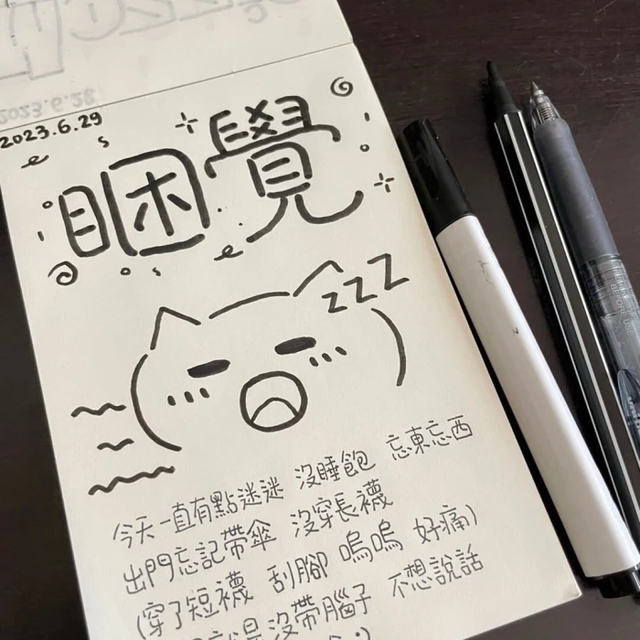 2023.6.28
2023.6.29
睏覺
zzZ
今天一直有點迷迷 沒睡飽 忘東忘西
出門忘記帶傘 沒穿長襪
(穿了短襪 刮腳 嗚嗚 好痛)
是沒帶腦子 不想說話